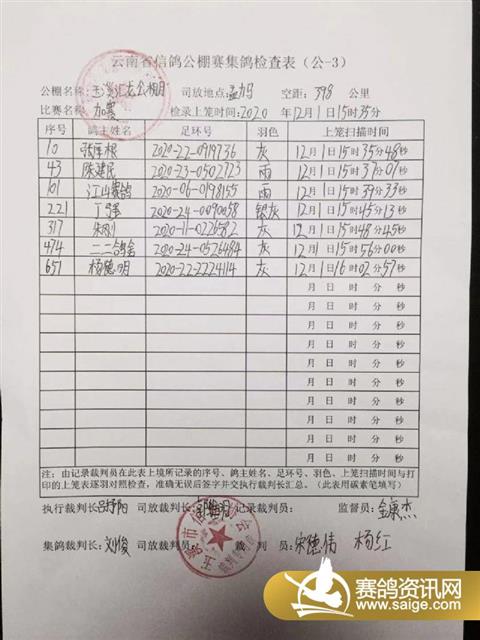 云南省信鸽公棚赛集鸽检查表（公-3）
公棚名称: 玉溪汇龙公棚 司放地点: 孟乌 空距: 398 公里
比赛名称: 加赛 检录上笼时间: 2020 年12月1日15时35分
序号 鸽主姓名 足环号 羽色 上笼扫描时间
10 张厚根 2020-22-0919736 灰 12月1日15时35分48秒
43 陈建民 2020-23-0502723 雨 12月1日15时37分07秒
101 江山赛鸽 2020-06-0198155 雨 12月1日15时39分33秒
221 丁强 2020-24-0090058 银灰 12月1日15时45分13秒
317 朱刚 2020-11-0226582 灰 12月1日15时48分45秒
474 二二鸽舍 2020-24-0526484 灰 12月1日15时56分00秒
651 杨德明 2020-22-2224114 灰 12月1日16时02分57秒
月 日 时 分 秒
月 日 时 分 秒
月 日 时 分 秒
月 日 时 分 秒
月 日 时 分 秒
月 日 时 分 秒
月 日 时 分 秒
月 日 时 分 秒
月 日 时 分 秒
月 日 时 分 秒
注：由记录裁判员在此表上填所记录的序号、鸽主姓名、足环号、羽色、上笼扫描时间与打
印的上笼表逐羽对照检查，准确无误后签字并交执行裁判长汇总。（此表用碳素笔填写）
执行裁判长: 司放裁判长: 记录裁判员: 监督员: 金康杰
集鸽裁判长: 刘俊 司放裁判员: 裁判员: 宋德伟 杨红
赛鸽资讯网
www.saige.com